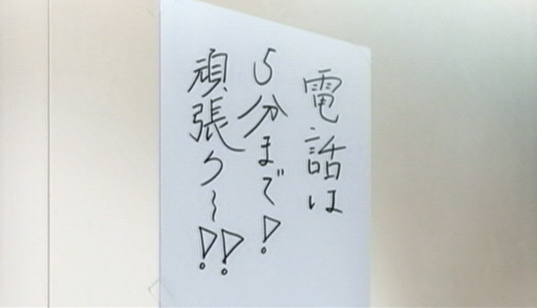 電話は
5分まで!
頑張ク〜!!